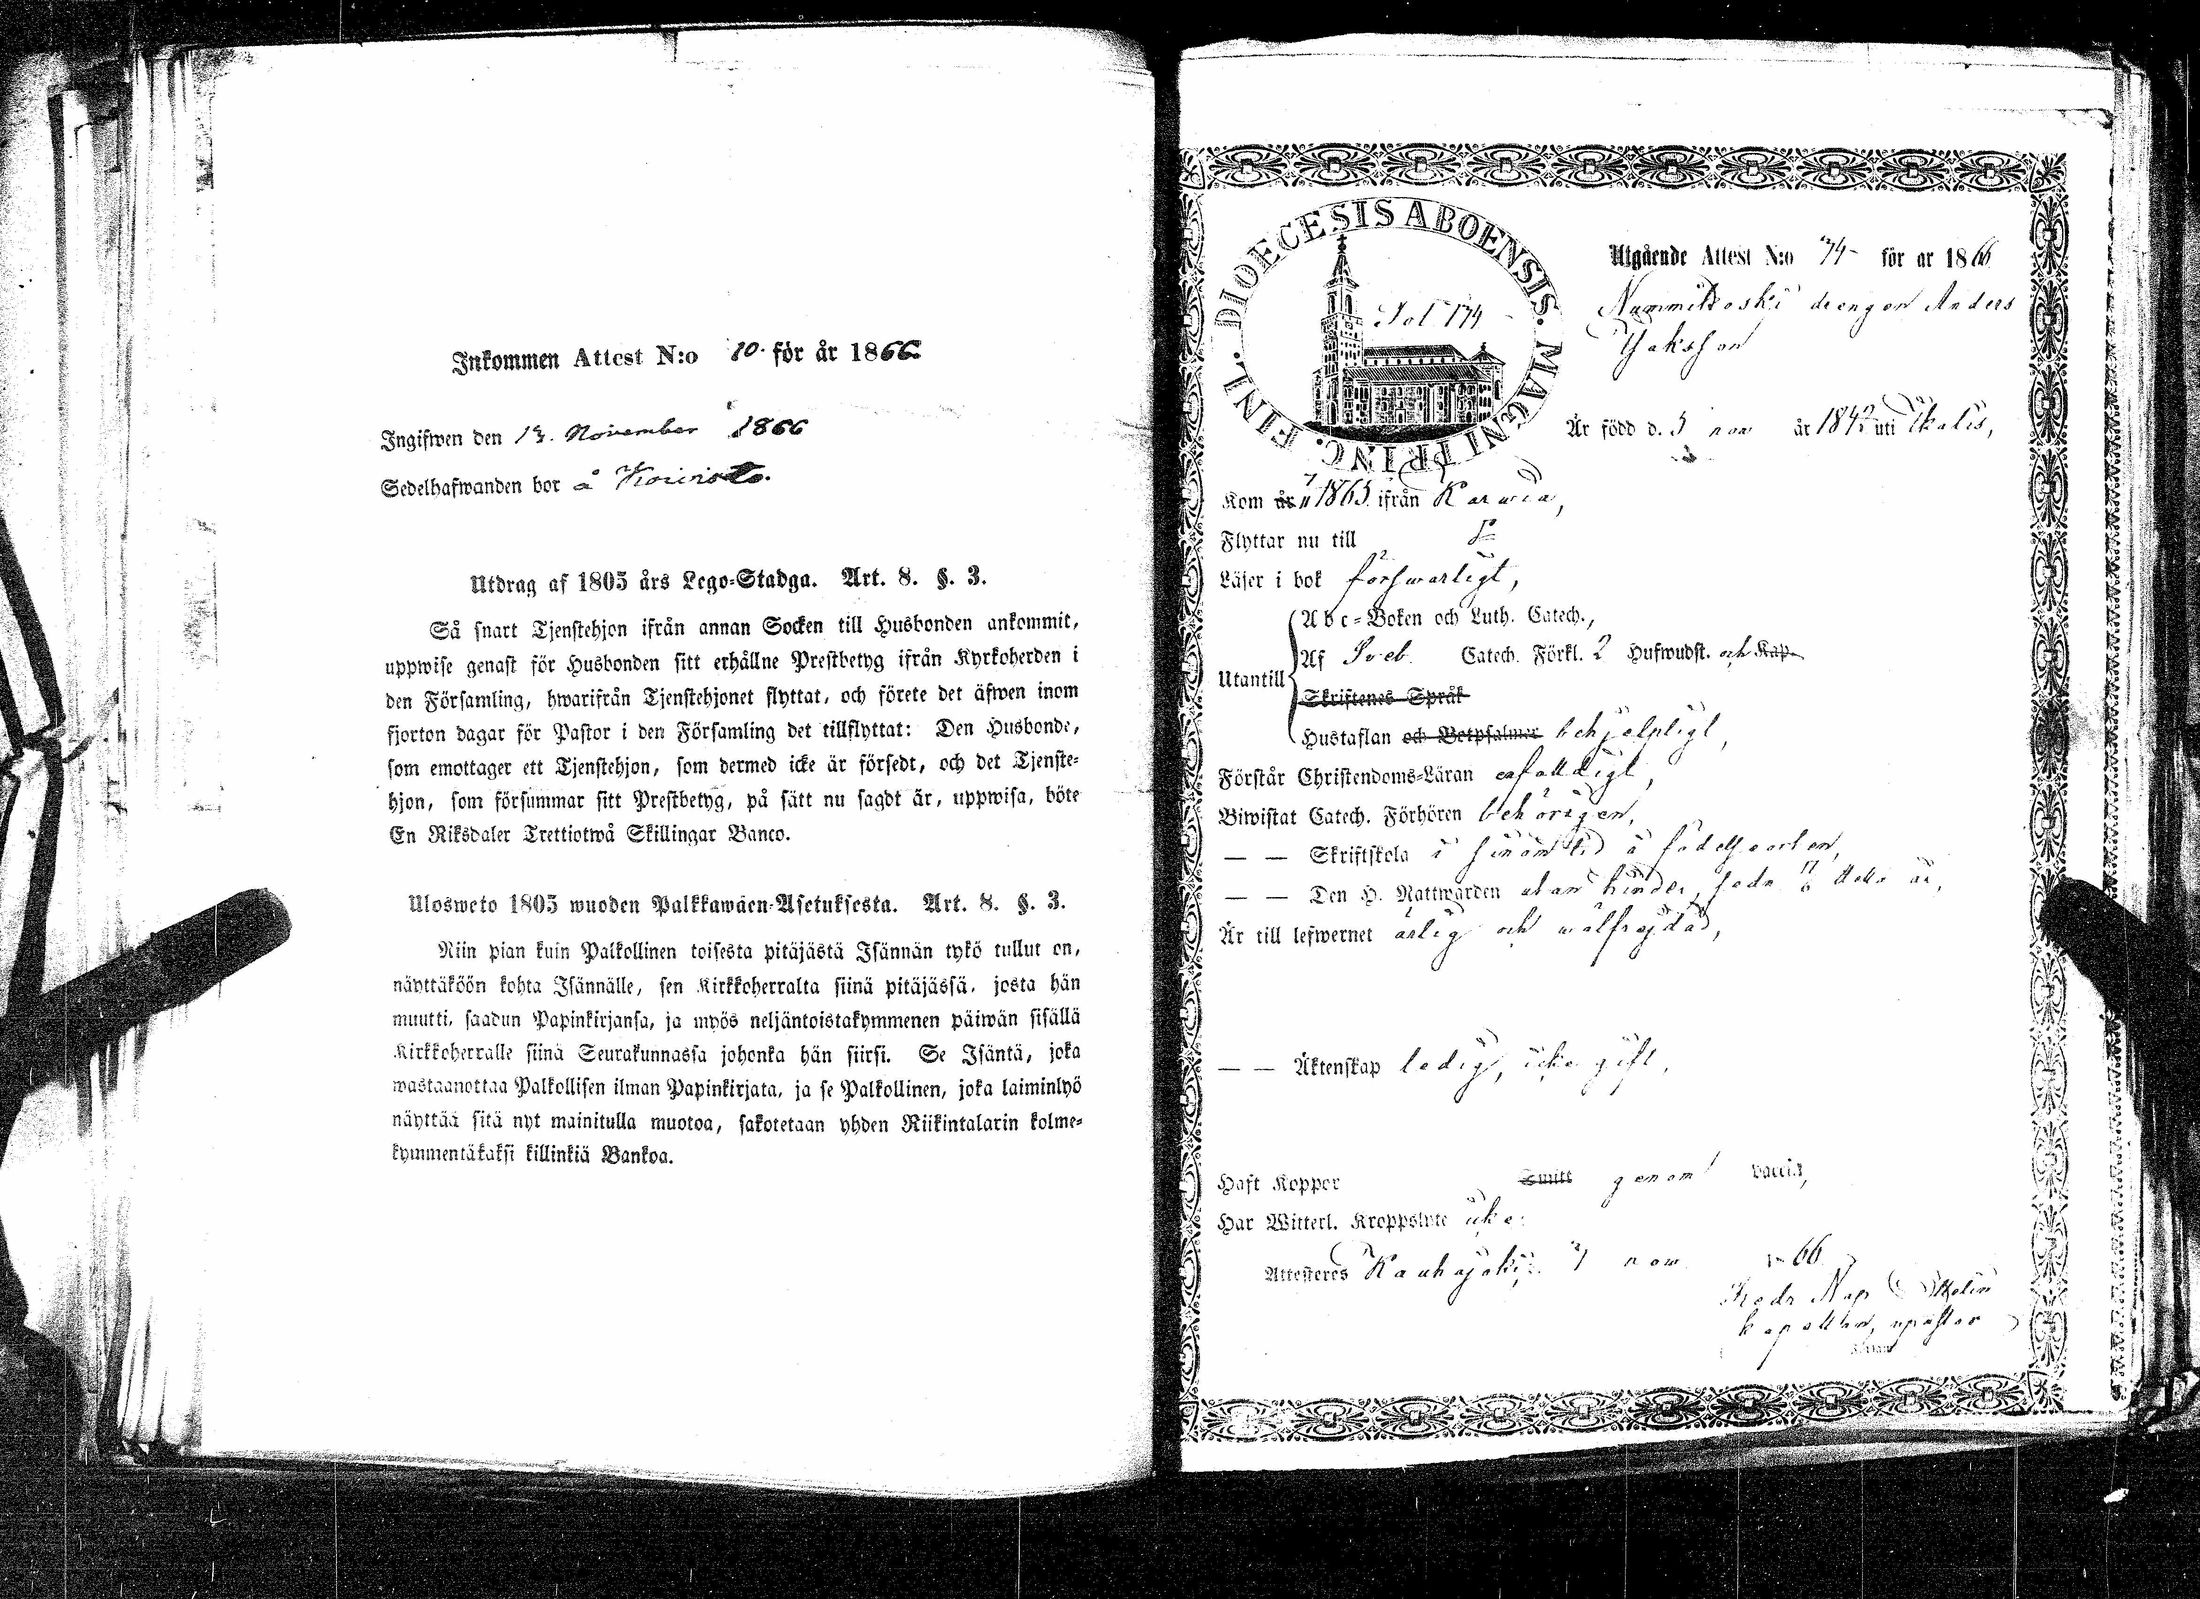 Inkommen Attest N:o 10. för år 1866.
Ingifwen den 13. November 1866
Sedelhafwanden bor å Koivisto.
Utdrag af 1805 års Lego-Stadga. Art. 8. §. 3.
Så snart Tjenstehjon ifrån annan Socken till Husbonden ankommit,
uppwise genast för Husbonden sitt erhållne Prestbetyg ifrån Kyrkoherden i
den Församling, hwarifrån Tjenstehjonet flyttat, och förete det äfwen inom
fjorton dagar för Pastor i den Församling det tillflyttat: Den Husbonde,
som emottager ett Tjenstehjon, som dermed icke är försedt, och det Tjenste-
hjon, som försummar sitt Prestbetyg, på sätt nu sagdt är, uppwisa, böte
En Riksdaler Trettiotwå Skillingar Banco.
Ulosweto 1805 wuoden Palkkawäen-Asetuksesta. Art. 8. §. 3.
Niin pian kuin Palkollinen toisesta pitäjästä Isännän tykö tullut on,
näyttäköön kohta Isännälle, sen Kirkkoherralta siinä pitäjässä, josta hän
muutti, saadun Papinkirjansa, ja myös neljäntoistakymmenen päiwän sisällä
Kirkkoherralle siinä Seurakunnassa johonka hän siirsi. Se Isäntä, joka
wastaanottaa Palkollisen ilman Papinkirjata, ja se Palkollinen, joka laiminlyö
näyttää sitä nyt mainitulla muotoa, sakotetaan yhden Riikintalarin kolme-
kymmentäkaksi killinkiä Bankoa.
DIOECESIS ABOENSIS. MAGNI PRINC. FINL.
Fol. 174
Utgående Attest N:o 74 för år 1866
Nummikoski drengen Anders
Jaksson
Är född d. 5 nov år 1842 uti Ikalis,
Kom år 1865 ifrån Karvia,
Flyttar nu till
Läser i bok försvarligt,
Abc-Boken och Luth. Catech.,
Utantill
Af Sveb. Catech. Förkl. 2 Hufwudst. och Kap.
Skriftenes Språk
Hustaflan och Botpsalmer behjelpligt,
Förstår Christendoms-Läran enfaldigt,
Biwistat Catech. Förhören behörigen,
— — Skriftskola i sinom tid å födelseorten,
— — Den H. Nattwarden utan hinder, detta år,
Är till lefwernet ärlig och välfrejdad,
— — Äktenskap ledig, icke gift,
Haft Koppor Smitt genom vaccin,
Har Witterl. Kroppslyte icke.
Attesteres Kauhajoki, 7 nov 66
Fredr Nap
kapellan, v pastor